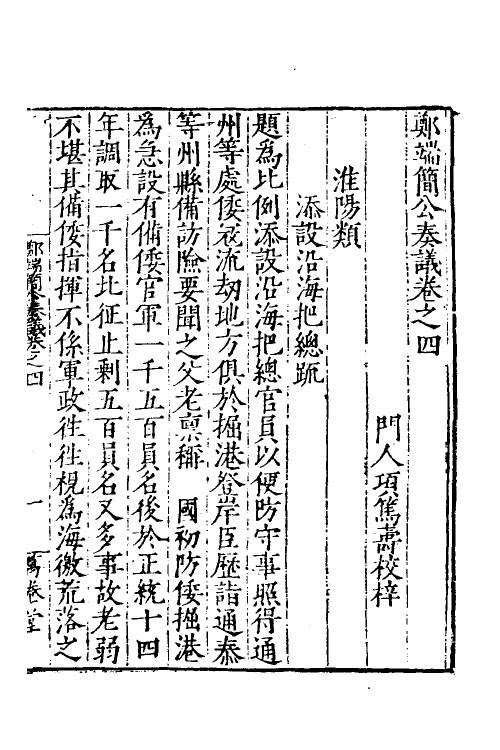 鄭端簡公奏議卷之四
門人項篤壽校梓
淮陽類
添設沿海把總疏
題為比例添設沿海把總官員以便防守事照得通
州等處倭寇流刼地方俱於掘港登岸臣歷詣通泰
等州縣備訪險要聞之父老稟稱 國初防倭掘港
為急設有備倭官軍一千五百員名後於正統十四
年調取一千名北征止剩五百員名又多事故老弱
不堪其備倭指揮不係軍政徃徃視為海徼荒落之
鄭端簡公奏議卷之四 一 萬卷堂